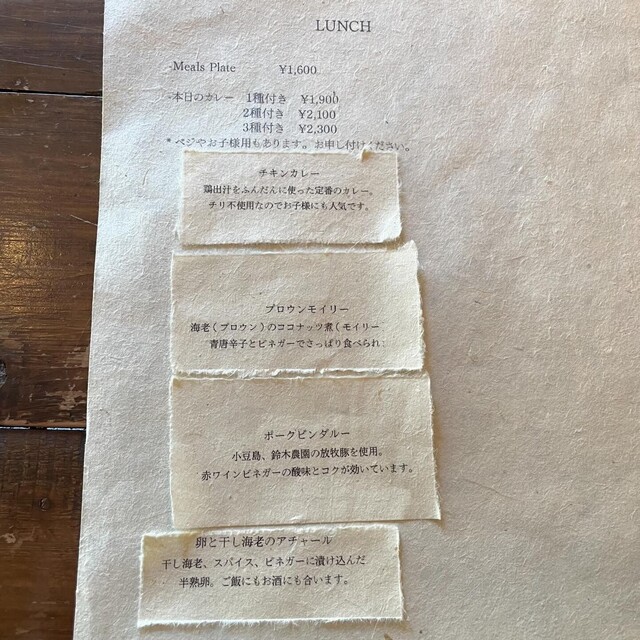 LUNCH
-Meals Plate ¥1,600
-本日のカレー 1種付き ¥1,900
2種付き ¥2,100
3種付き ¥2,300
* ベジやお子様用もあります。お申し付けください。
チキンカレー
鶏出汁をふんだんに使った定番のカレー。
チリ不使用なのでお子様にも人気です。
プロウンモイリー
海老(プロウン)のココナッツ煮(モイリー
青唐辛子とビネガーでさっぱり食べられ
ポークビンダルー
小豆島、鈴木農園の放牧豚を使用。
赤ワインビネガーの酸味とコクが効いています。
卵と干し海老のアチャール
干し海老、スパイス、ビネガーに漬け込んだ
半熟卵。ご飯にもお酒にも合います。